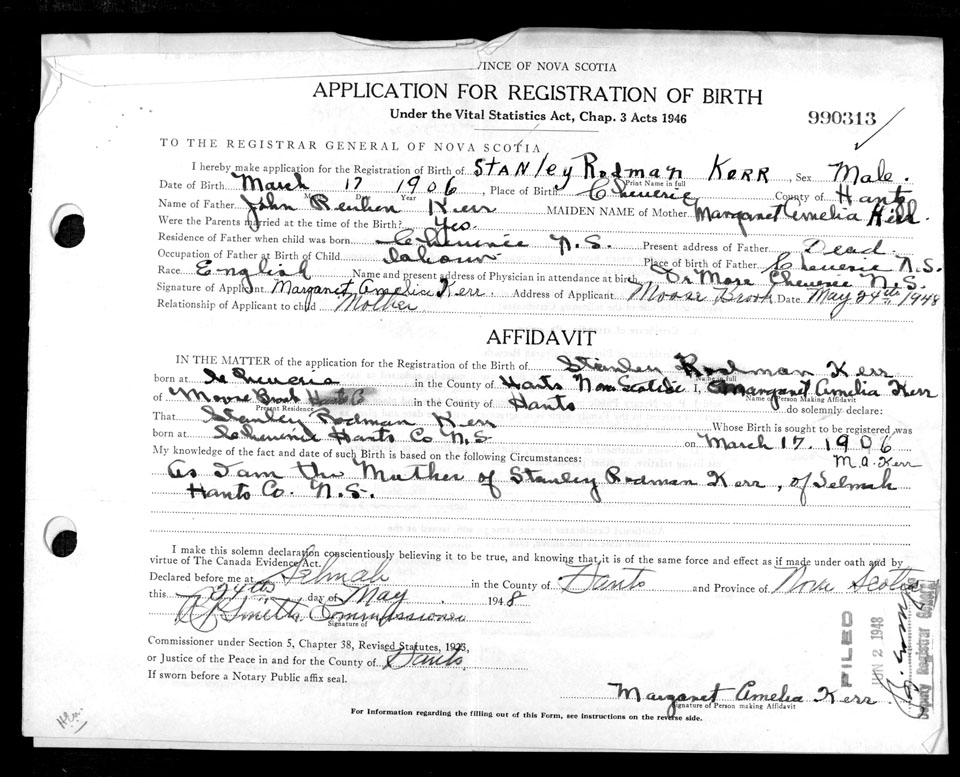 VINCE OF NOVA SCOTIA
APPLICATION FOR REGISTRATION OF BIRTH
Under the Vital Statistics Act, Chap. 3 Acts 1946
990313
TO THE REGISTRAR GENERAL OF NOVA SCOTIA
I hereby make application for the Registration of Birth of STANLEY Rodman KERR Sex Male
Print Name in full
Date of Birth March 17 1906, Place of Birth Cheverie County of Hants
Year
Name of Father John Reuben Kerr MAIDEN NAME of Mother Margaret Amelia
Were the Parents married at the time of the Birth? Yes.
Residence of Father when child was born Cheverie N.S. Present address of Father Dead
Occupation of Father at Birth of Child Place of birth of Father Cheverie N.S.
Race English Name and present address of Physician in attendance at birth Dr Cheverie N.S.
Signature of Applicant Margaret Amelia Kerr Address of Applicant Moose Brook Date May 24th 1948
Relationship of Applicant to child Mother
AFFIDAVIT
IN THE MATTER of the application for the Registration of the Birth of Stanley Rodman Kerr
Name in full
born at Cheverie in the County of Hants Nova Scotia I, Margaret Amelia Kerr
Name of Person Making Affidavit
of Moose Brook Hants Co in the County of Hants do solemnly declare:
Present Residence
That Stanley Rodman Kerr Whose Birth is sought to be registered was
born at Cheverie Hants Co N.S on March 17 1906
My knowledge of the fact and date of such Birth is based on the following Circumstances: M.A. Kerr
As I am the Mother of Stanley Rodman Kerr, of Selmah
Hants Co. N.S.
I make this solemn declaration conscientiously believing it to be true, and knowing that it is of the same force and effect as if made under oath and by
virtue of The Canada Evidence Act.
Declared before me at Selmah in the County of Hants and Province of Nova Scotia
this 24th day of May 1948
Smith Commissioner
Signature of
Commissioner under Section 5, Chapter 38, Revised Statutes, 1923,
or Justice of the Peace in and for the County of Hants
If sworn before a Notary Public affix seal.
FILED
JUN 2 1948
Deputy Registrar General
Margaret Amelia Kerr
Signature of Person making Affidavit
For Information regarding the filling out of this Form, see instructions on the reverse side.